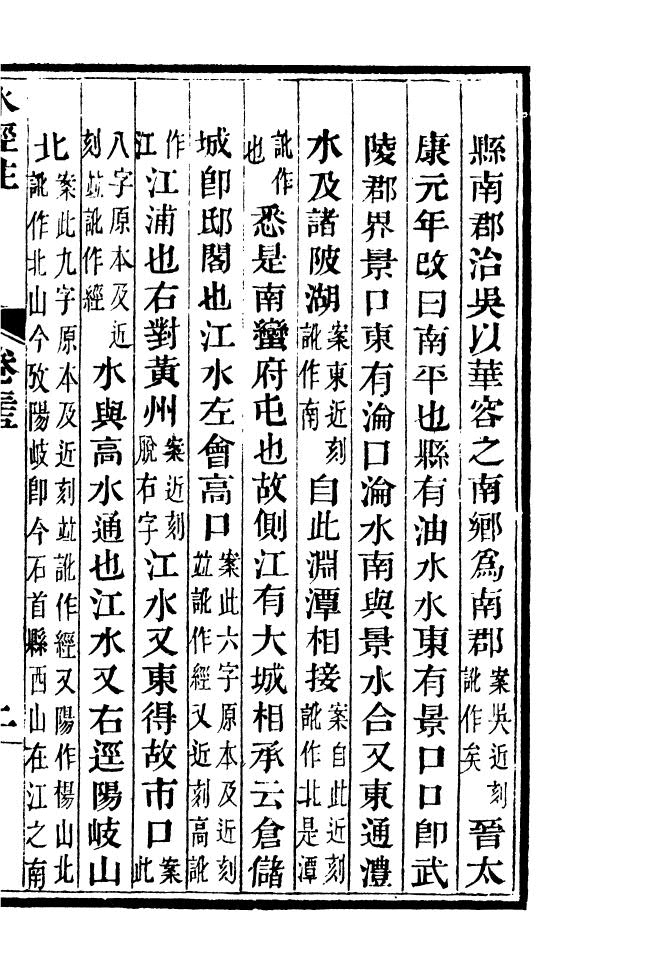 縣南郡治吳以華容之南鄉爲南郡案吳近刻訛作矣晉太
康元年改曰南平也縣有油水水東有景口口卽武
陵郡界景口東有淪口淪水南與景水合又東通澧
水及諸陂湖案東近刻訛作南自此淵潭相接案自此近刻訛作北是潭
訛作也悉是南蠻府屯也故側江有大城相承云倉儲
城卽邸閣也江水左會高口案此六字原本及近刻竝訛作經又近刻高訛
作江江浦也右對黃州案近刻脫右字江水又東得故市口案此
八字原本及近刻竝訛作經水與高水通也江水又右逕陽岐山
北案此九字原本及近刻竝訛作經又陽作楊山北訛作北山今攷陽岐卽今石首縣西山在江之南
水經注
卷三十五
二